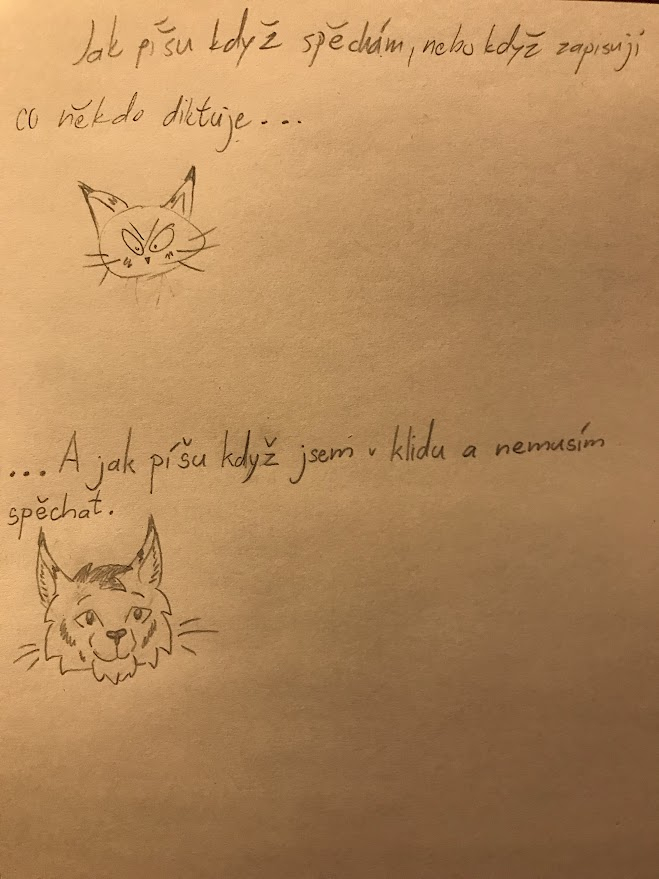 Jak píšu když spěchám, nebo když zapisují
co někdo diktuje...
...A jak píšu když jsem v klidu a nemusím
spěchat.